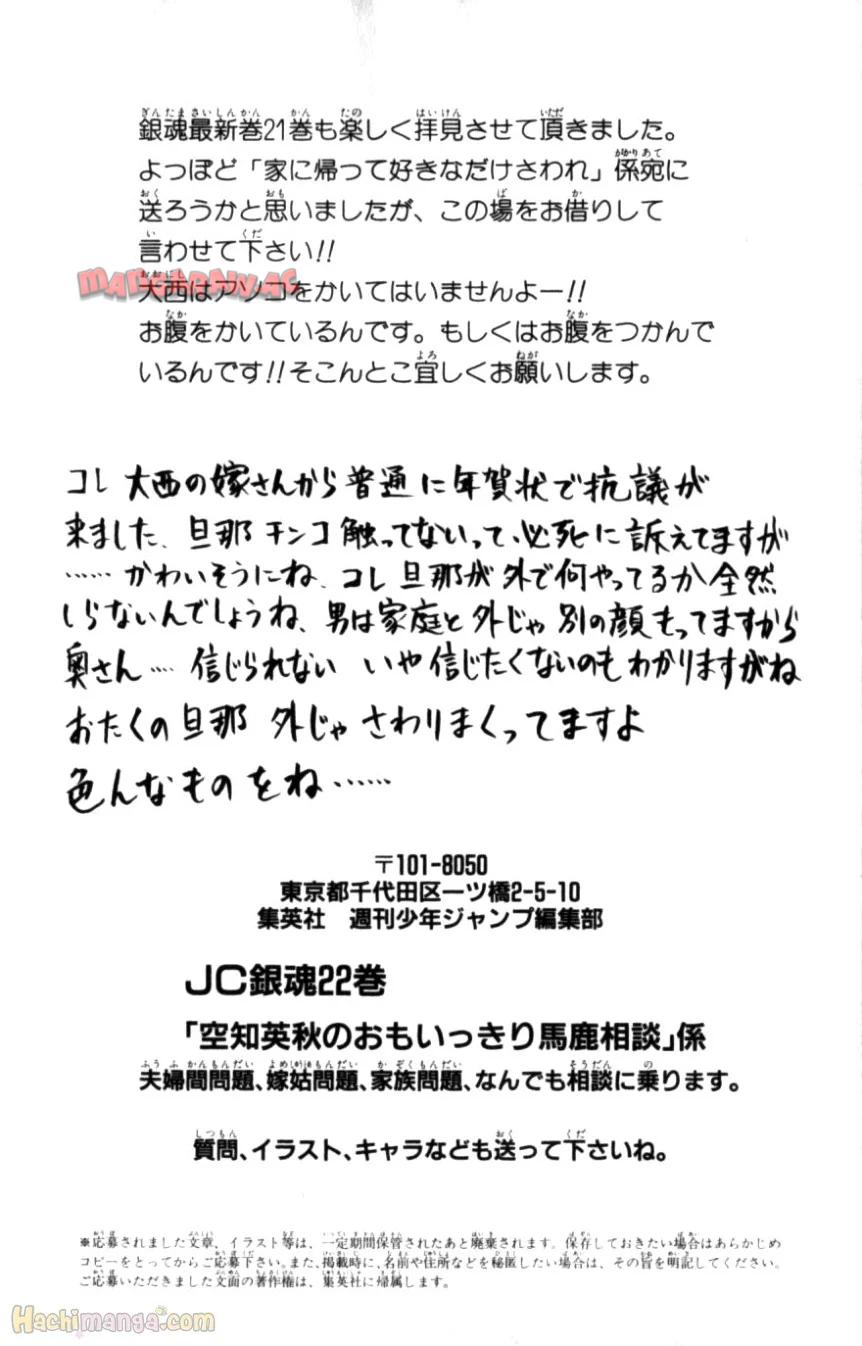 銀魂最新巻21巻も楽しく拝見させて頂きました。
よっぽど「家に帰って好きなだけさわれ」係宛に
送ろうかと思いましたが、この場をお借りして
言わせて下さい!!
大西はアソコをかいてはいませんよー!!
お腹をかいているんです。もしくはお腹をつかんで
いるんです!!そこんとこ宜しくお願いします。
コレ 大西の嫁さんから普通に年賀状で抗議が
来ました、旦那チンコ触ってないって、必死に訴えてますが
……かわいそうにね、コレ旦那が外で何やってるか全然
しらないんでしょうね、男は家庭と外じゃ別の顔もってますから
奥さん… 信じられない いや信じたくないのもわかりますがね
おたくの旦那 外じゃさわりまくってますよ
色んなものをね……
〒101-8050
東京都千代田区一ツ橋2-5-10
集英社 週刊少年ジャンプ編集部
JC銀魂22巻
「空知英秋のおもいっきり馬鹿相談」係
夫婦間問題、嫁姑問題、家族問題、なんでも相談に乗ります。
質問、イラスト、キャラなども送って下さいね。
※応募されました文章、イラスト等は、一定期間保管されたあと廃棄されます。保存しておきたい場合はあらかじめ
コピーをとってからご応募下さい。また、掲載時に、名前や住所などを秘匿したい場合は、その旨を明記してください。
ご応募いただきました文面の著作権は、集英社に帰属します。
Hachimanga.com